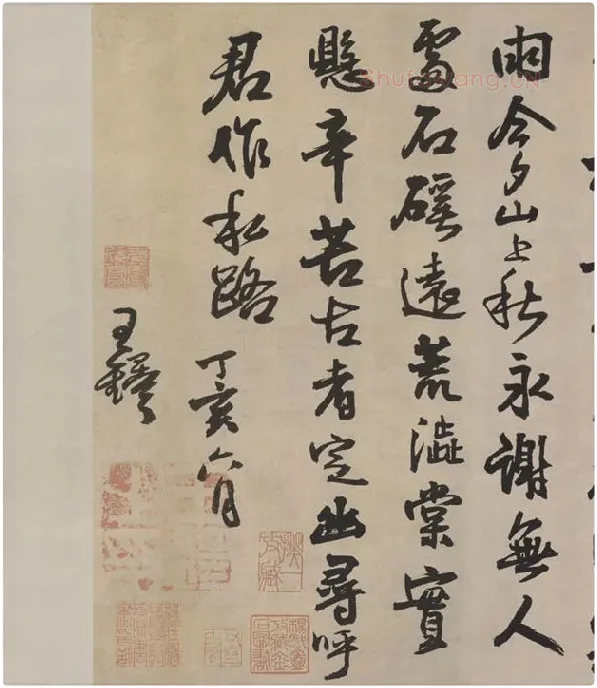 雨今夕山上秋永謝無人
處石磎遠荒澁棠實
懸辛苦古者定幽尋呼
君作私路
丁亥六月
王鐸
Shufawang.CN